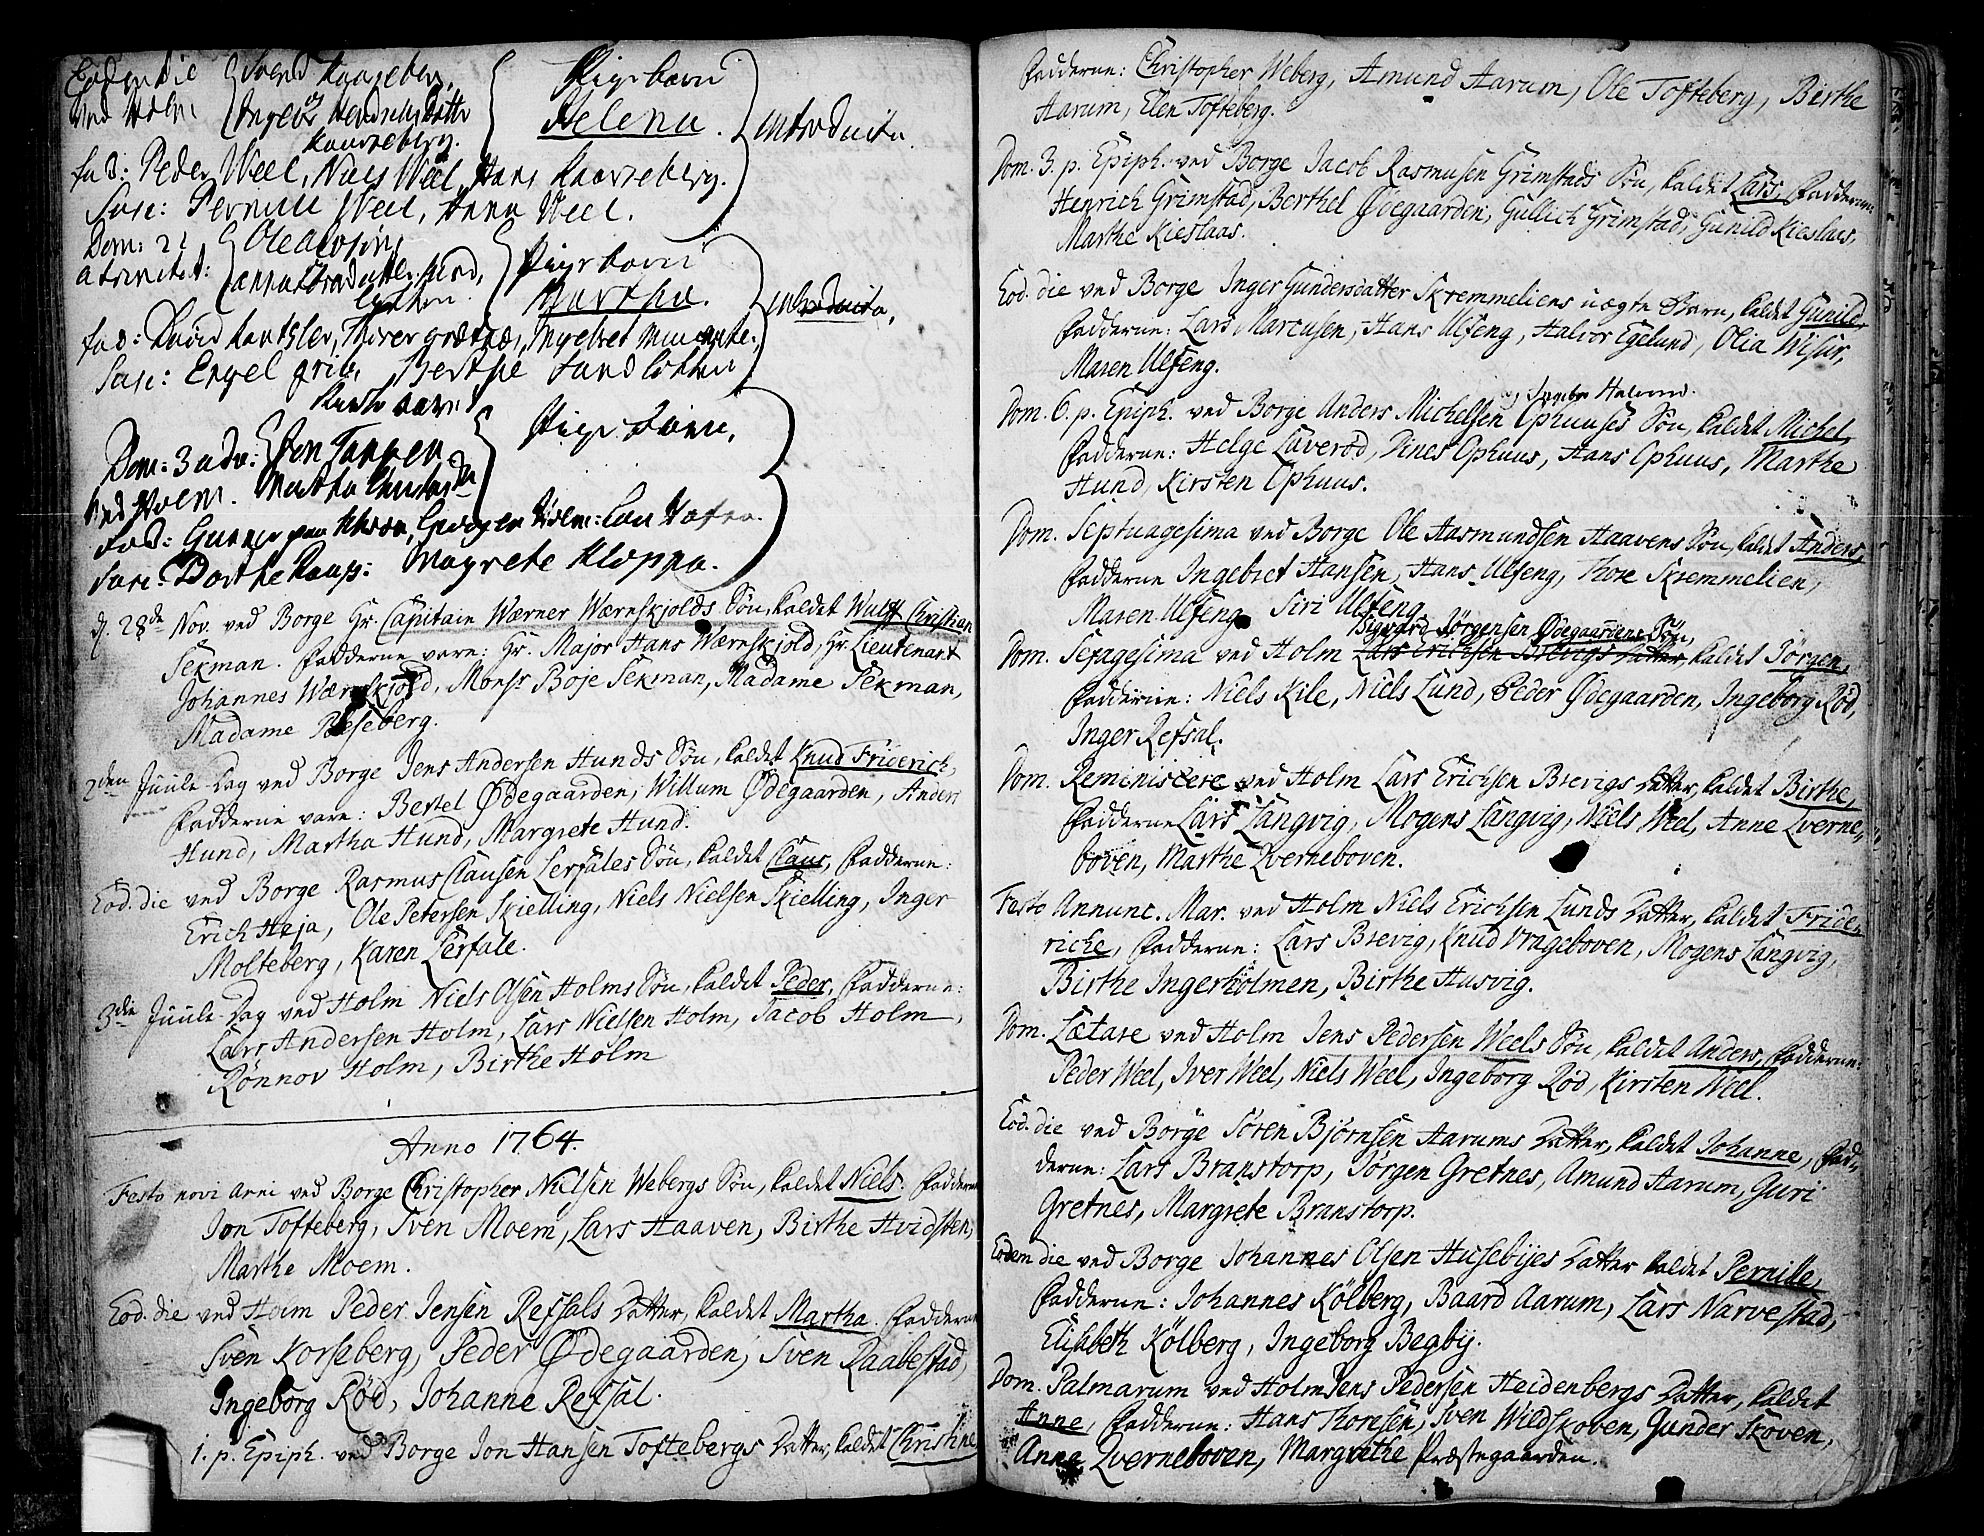 Eodem die Svend Kaarseberg, Pige barn
ved Holm Ingebr Hendrichs Dotter Helena. introducta.
Kaarseberg.
fad: Peder Weel, Niels Weel, Hans Kaarseberg.
Sure: Pernille Weel, Anna Weel.
Dom: 21 Ole Pige barn
a trinitat: Martha. introducta,
fad: David Kantsler, Ingebret
Sure: Engel Berthe Sandlökken
Dom: 3 adv: Jon Tangen Pige barn,
ved Holm. Martha
Fad: Gunner
Sure: Dorthe Kaasa: Magrete Kloppa.
d. 28de Nov. ved Borge Hr. Capitain Wærner Wærnskjolds Søn, kaldet Wulff Christian
Sekman. Fadderne vare: Hr. Major Hans Wærnskjold, Hr. Lieutenant
Johannes Wærnskjold, Monsr Boje Sekman, Madame Sekman,
Madame Reseberg.
2den Juule-Dag ved Borge Jens Andersen Hunds Søn, kaldet Knud Friderich,
Fadderne vare: Bertel Ødegaarden, Willum Ødegaarden, Anders
Hund, Martha Hund, Margrete Hund.
Eod. die ved Borge Rasmus Clausen Lerfales Søn, kaldet Claus, Fadderne:
Erich Haja, Ole Petersen Skielling, Niels Nielsen Skielling, Inger
Molteberg, Karen Lerfale.
3die Juule-Dag ved Holm Niels Olsen Holms Søn, kaldet Peder, Fadderne:
Lars Andersen Holm, Lars Nielsen Holm, Jacob Holm,
Rönnov Holm, Birthe Holm
Anno 1764.
Festo novi Anni ved Borge Christopher Nielsen Webergs Søn, kaldet Niels. Fadderne
Jon Tofteberg, Sven Moem, Lars Haaven, Birthe Hvidsten,
Marthe Moem.
Eod. die ved Holm Peder Jensen Refsals Datter, kaldet Martha. Fadderne
Sven Korseberg, Peder Ødegaarden, Sven Raabestad,
Ingeborg Rød, Johanne Refsal.
1. p. Epiph. ved Borge Jon Hansen Toftebergs Datter, kaldet Christine
Fadderne: Christopher Weberg, Amund Aarum, Ole Tofteberg, Birthe
Aarum, Elen Tofteberg.
Dom. 3. p. Epiph. ved Borge Jacob Rasmusen Grimstads Søn, kaldet Lars, Fadderne:
Henrich Grimstad, Berthel Ødegaarden, Gullich Grimstad, Gunild Kieslaas,
Marthe Kieslaas.
Eod. die ved Borge Inger Gundersdatter Skremmeliens uægte Barn, kaldet Gunild,
Fadderne: Lars Marcusen, Hans Ulfeng, Halvor Egelund, Olia Wisur,
Maren Ulfeng.
Dom. 6. p. Epiph. ved Borge Anders Michelsen Ophuuses Søn, kaldet Michel,
Fadderne: Helge Laverød, Dines Ophuus, Hans Ophuus, Marthe
Hund, Kirsten Ophuus.
Dom. Septuagesima ved Borge Ole Aasmundsen Haavens Søn, kaldet Anders,
Fadderne Ingebret Hansen, Hans Ulfeng, Thore Skremmelien,
Maren Ulfeng, Siri Ulfeng.
Sigvard Jörgensen Ødegaardens Søn,
Dom. Sexagesima ved Holm Lars Erichsen Brevigs Datter, kaldet Jörgen,
Fadderne: Niels Kile, Niels Lund, Peder Ødegaarden, Ingeborg Rød,
Inger Refsal.
Dom. Reminiscere ved Holm Lars Erichsen Brevigs Datter, kaldet Birthe,
Fadderne Lars Langvig, Mogens Langvig, Niels Weel, Anne Qverne-
boven, Marthe Qverneboven.
Festo Annunc. Mar. ved Holm Niels Erichsen Lunds Datter, kaldet Fride-
riche, Fadderne: Lars Brevig, Knud Vrageboven, Mogens Langvig,
Birthe Ingerholmen, Birthe Husvig.
Dom. Lætare ved Holm Jens Pedersen Weels Søn, kaldet Anders, Fadderne:
Peder Weel, Iver Weel, Niels Weel, Ingeborg Rød, Kirsten Weel.
Eod. die ved Borge Sören Björnsen Aarums Datter, kaldet Johanne, Fad-
derne: Lars Branstorp, Jörgen Gretnes, Amund Aarum, Guri
Gretnes, Margrete Branstorp.
Eodem die ved Borge Johannes Olsen Husebijes Datter kaldet Pernille,
Fadderne: Johannes Kölberg, Baard Aarum, Lars Narvestad,
Elisabeth Kölberg, Ingeborg Begbij.
Dom. Palmarum ved Holm Jens Pedersen Heidenbergs Datter, kaldet
Anne, Fadderne: Hans Thoresen, Sven Wildskoven, Gunder Skoven,
Anne Qverneboven, Margrethe Præstegaarden.